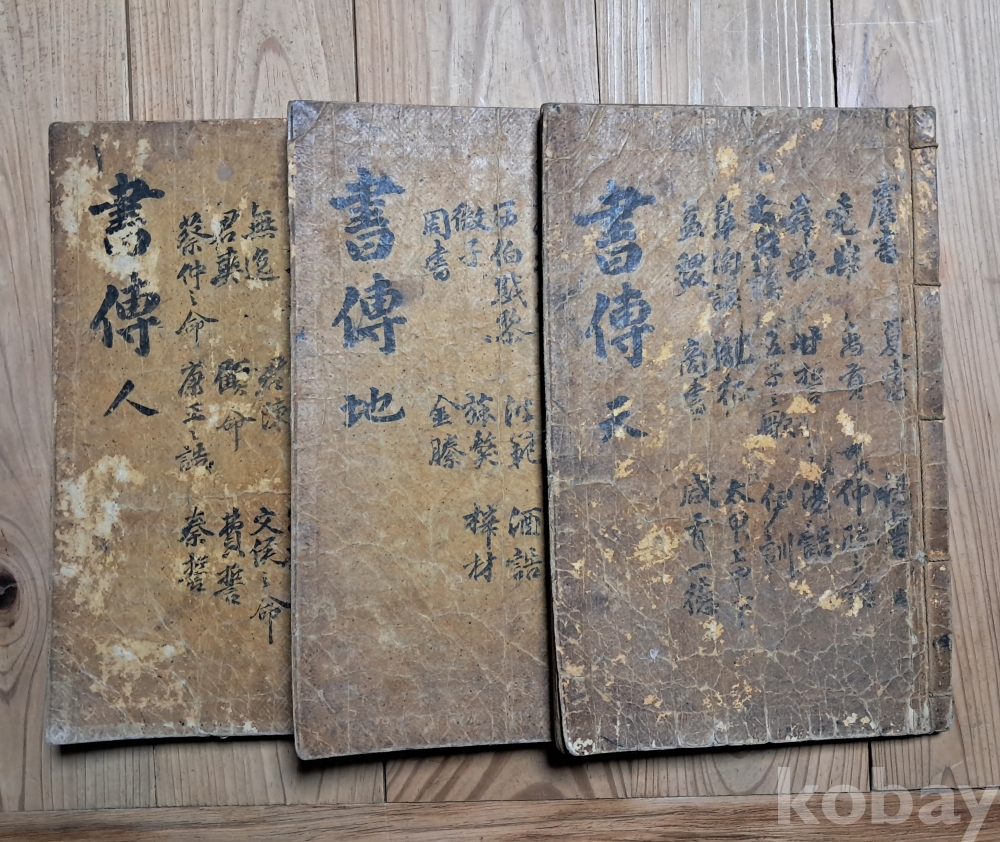 虞書 夏書 湯誓
堯典 禹貢 仲虺之誥
舜典 甘誓 湯誥
大禹謨 五子之歌 伊訓
皐陶謨 胤征 太甲上中下
益稷 商書 咸有一德
書傳 天
西伯戡黎 洪範 酒誥
微子 旅獒 梓材
周書 金縢
書傳 地
無逸 君陳 文侯之命
君奭 顧命 費誓
蔡仲之命 康王之誥 秦誓
書傳 人
kobay